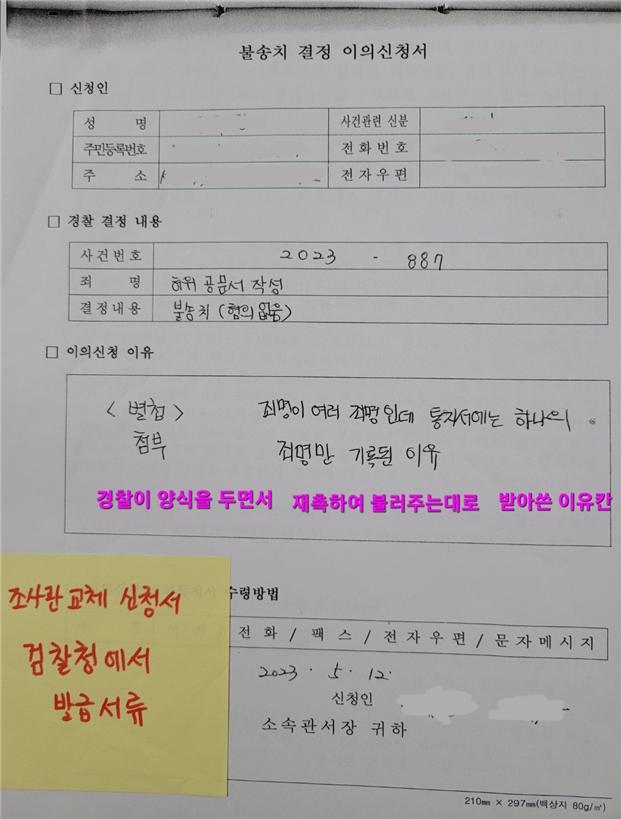 불송치 결정 이의신청서
□ 신청인
성 명 사건관련 신분
주민등록번호 전화번호
주 소 전자우편
□ 경찰 결정 내용
사건번호 2023 - 887
죄 명 허위 공문서 작성
결정내용 불송치 (혐의없음)
□ 이의신청 이유
<별첨> 죄명이 여러 죄명인데 통지서에는 하나의
첨부 죄명만 기록된 이유
경찰이 양식을 두면서 재촉하여 불러주는대로 받아쓴 이유칸
수령방법
전화 / 팩스 / 전자우편 / 문자메시지
조사관교체 신청서
검찰청에서
발급서류
2023 . 5 . 12.
신청인
소속관서장 귀하
210㎜ × 297㎜(백상지 80g/㎡)